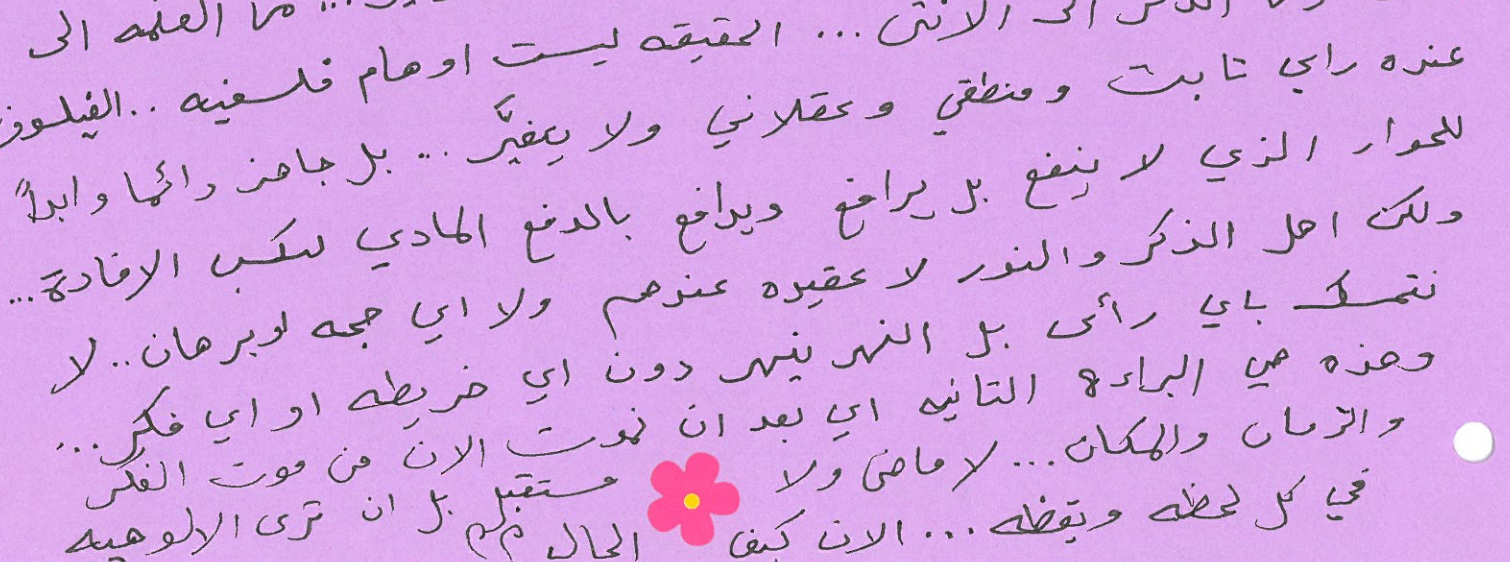 من العلمه الى
الذكر الى الانثى ... الحقيقه ليست اوهام فلسفيه .. الفيلسوف
عنده راي ثابت ومنطقي وعقلاني ولا يتغيَّر ... بل جاهز دائما وابداً
للحوار الذي لا ينفع بل يرافع ويدافع بالدفع المادي لنكسب الافادة...
ولكن اهل الذكر والنور لا عقيده عندهم ولا اي حجه او برهان.. لا
نتمسك باي رأى بل النهر ينهر دون اي خريطه او اي فكر...
وهذه هي البراءة التانيه اي بعد ان نموت الان من موت الفكر
والزمان والمكان... لا ماضى ولا مستقبل بل ان نرى الالوهيه
في كل لحظه ويقظه... الان كيف الحال؟؟